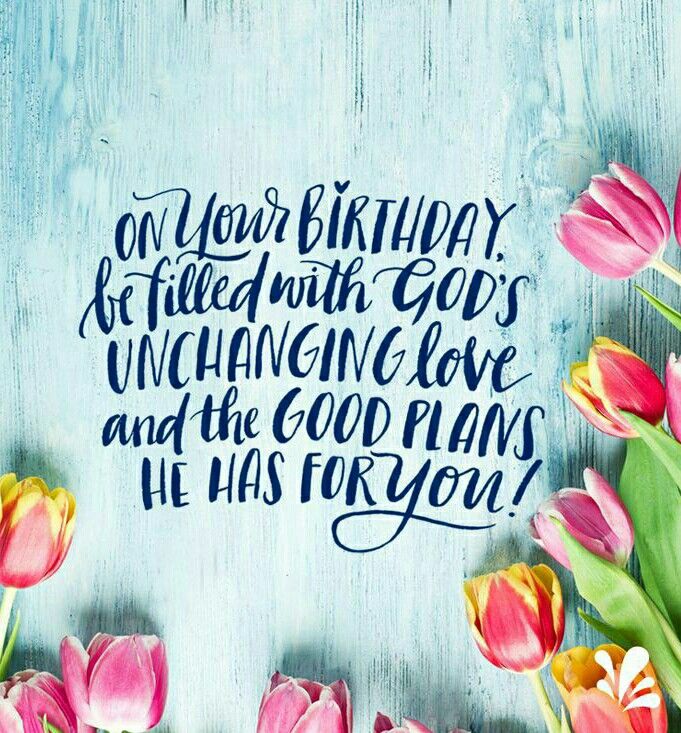 ON your BIRTHDAY,
be filled with GOD'S
UNCHANGING love
and the GOOD PLANS
HE HAS FOR you!